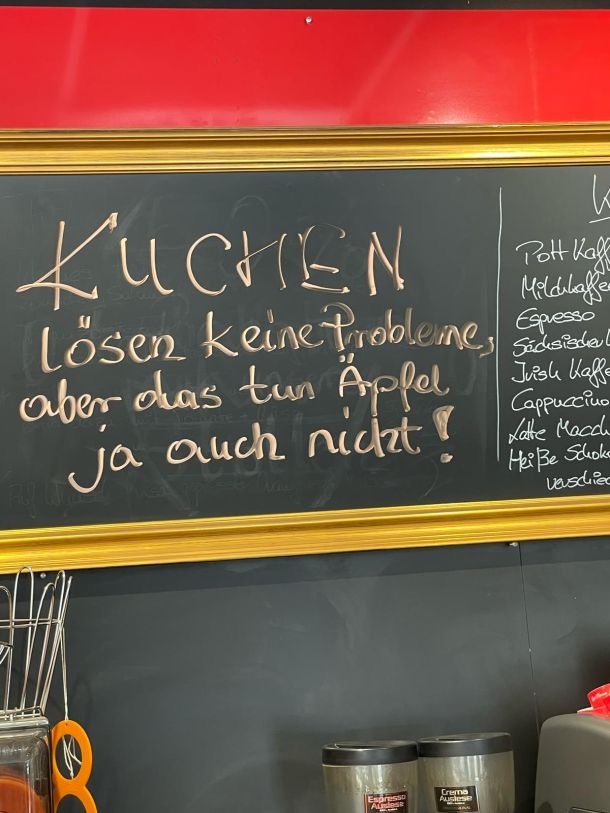 KUCHEN
lösen keine Probleme,
aber das tun Äpfel
ja auch nicht!
Pott Kaff
Milchkaffee
Espresso
Sächsischer
Irish Kaffe
Cappuccino
Latte Macch
Heiße Schoko
verschied
Espresso
Auslese
Crema
Auslese